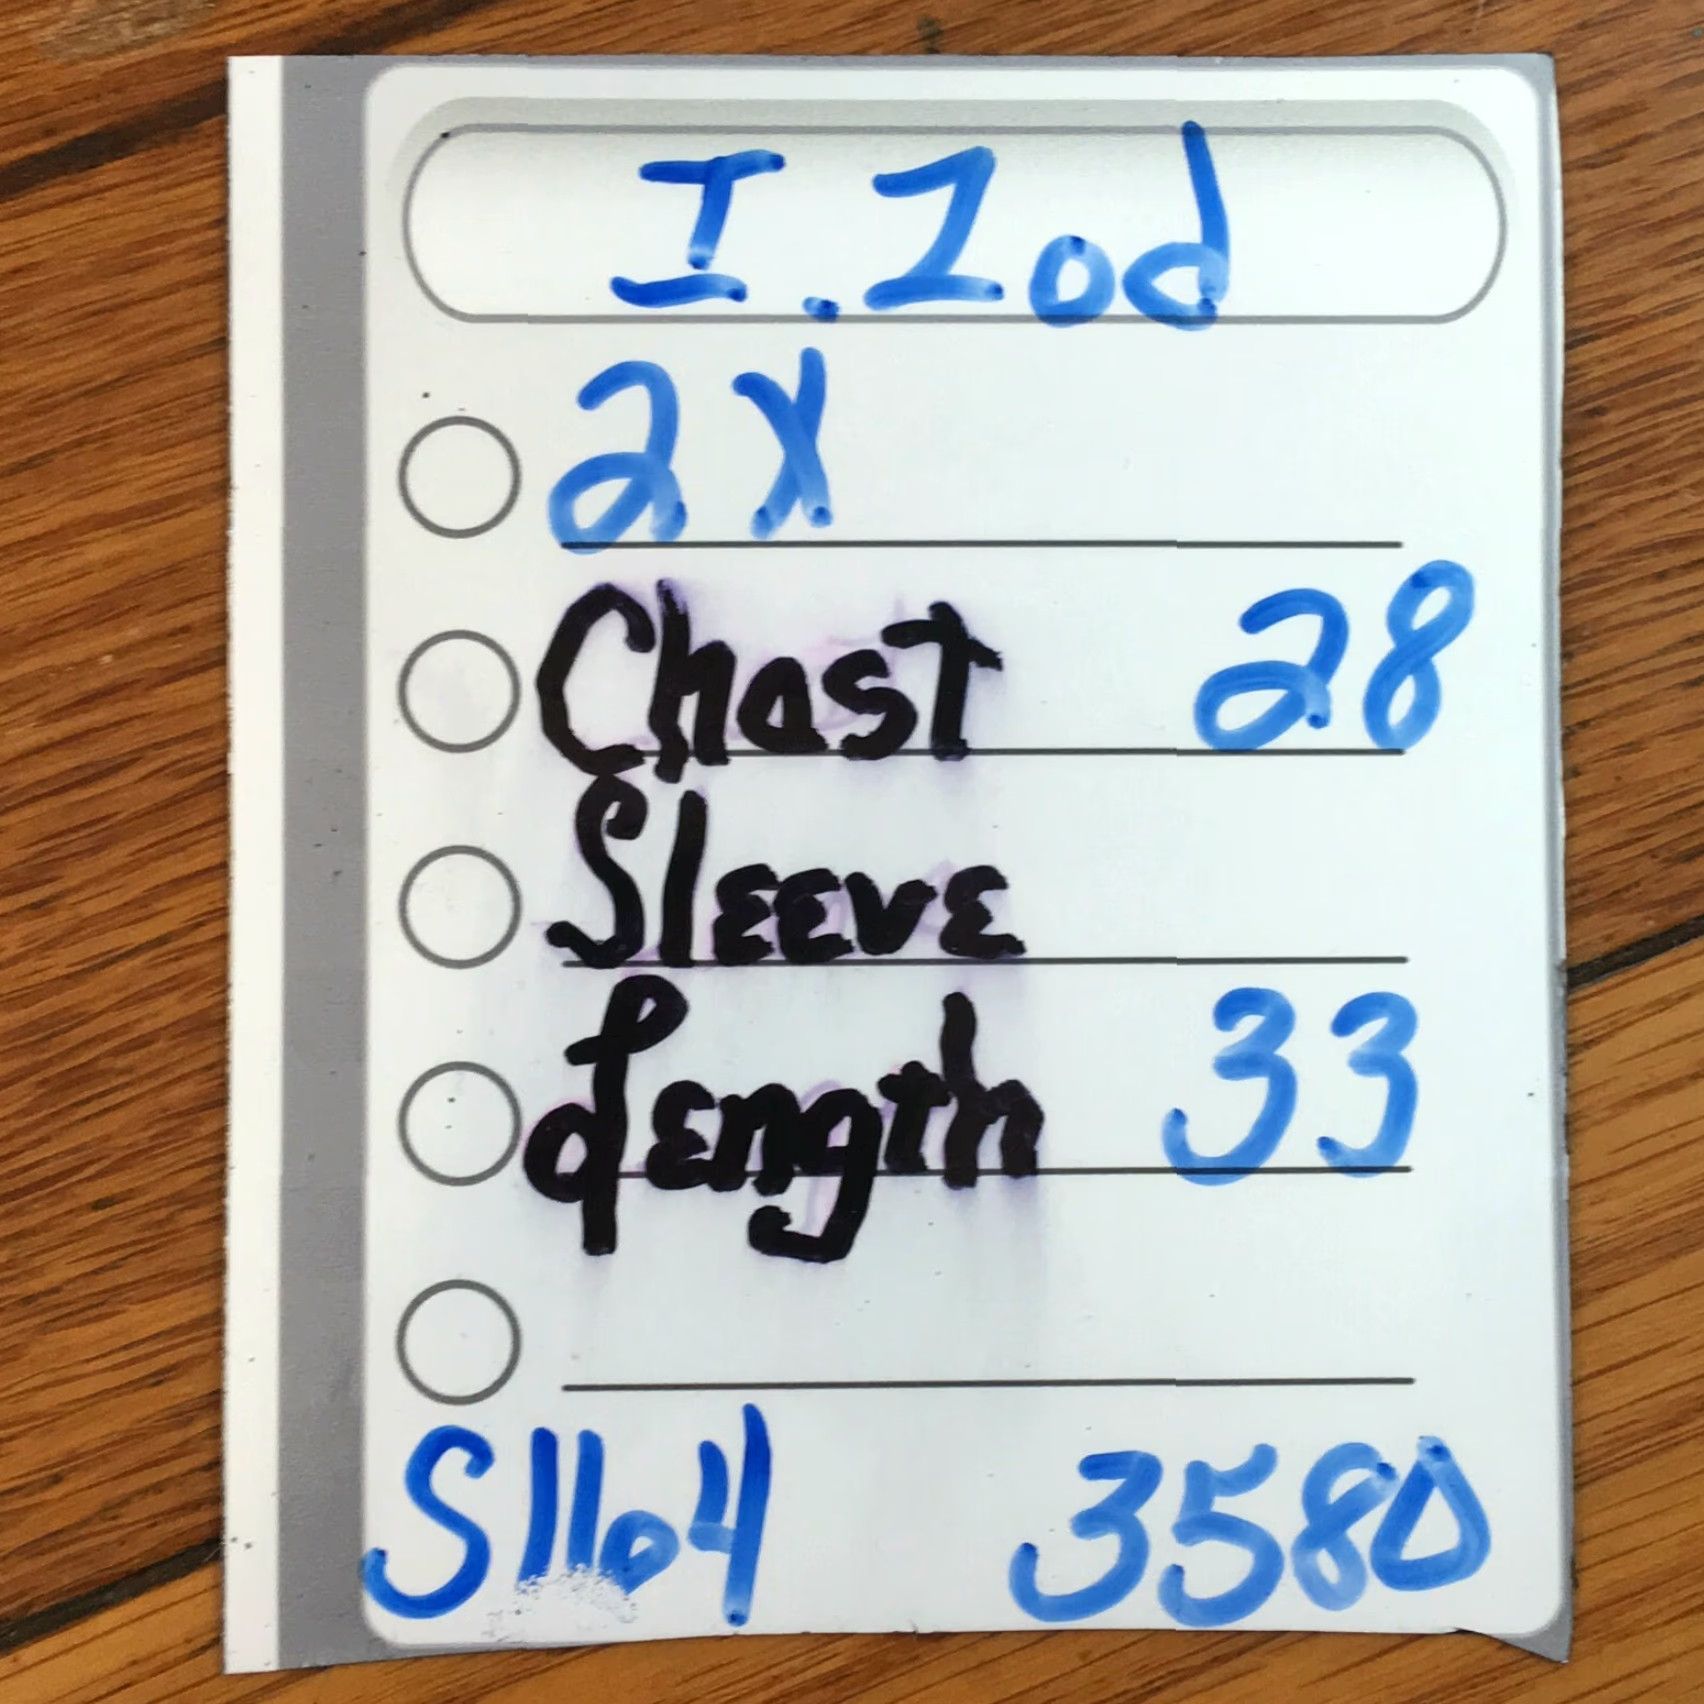 I.Zod
2X
Chast 28
Sleeve
Length 33
S1164 3580